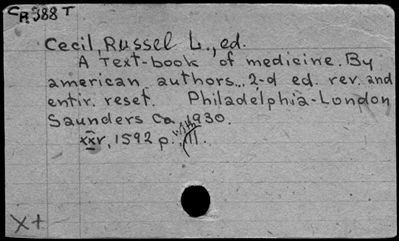 CR388T
Cecil, Russel L., ed.
A Text-book of medicine. By
american authors... 2-d ed. rev. and
entir. reset. Philadelphia-London
Saunders Co. 1930.
xxv, 1592 p. ill.
X+